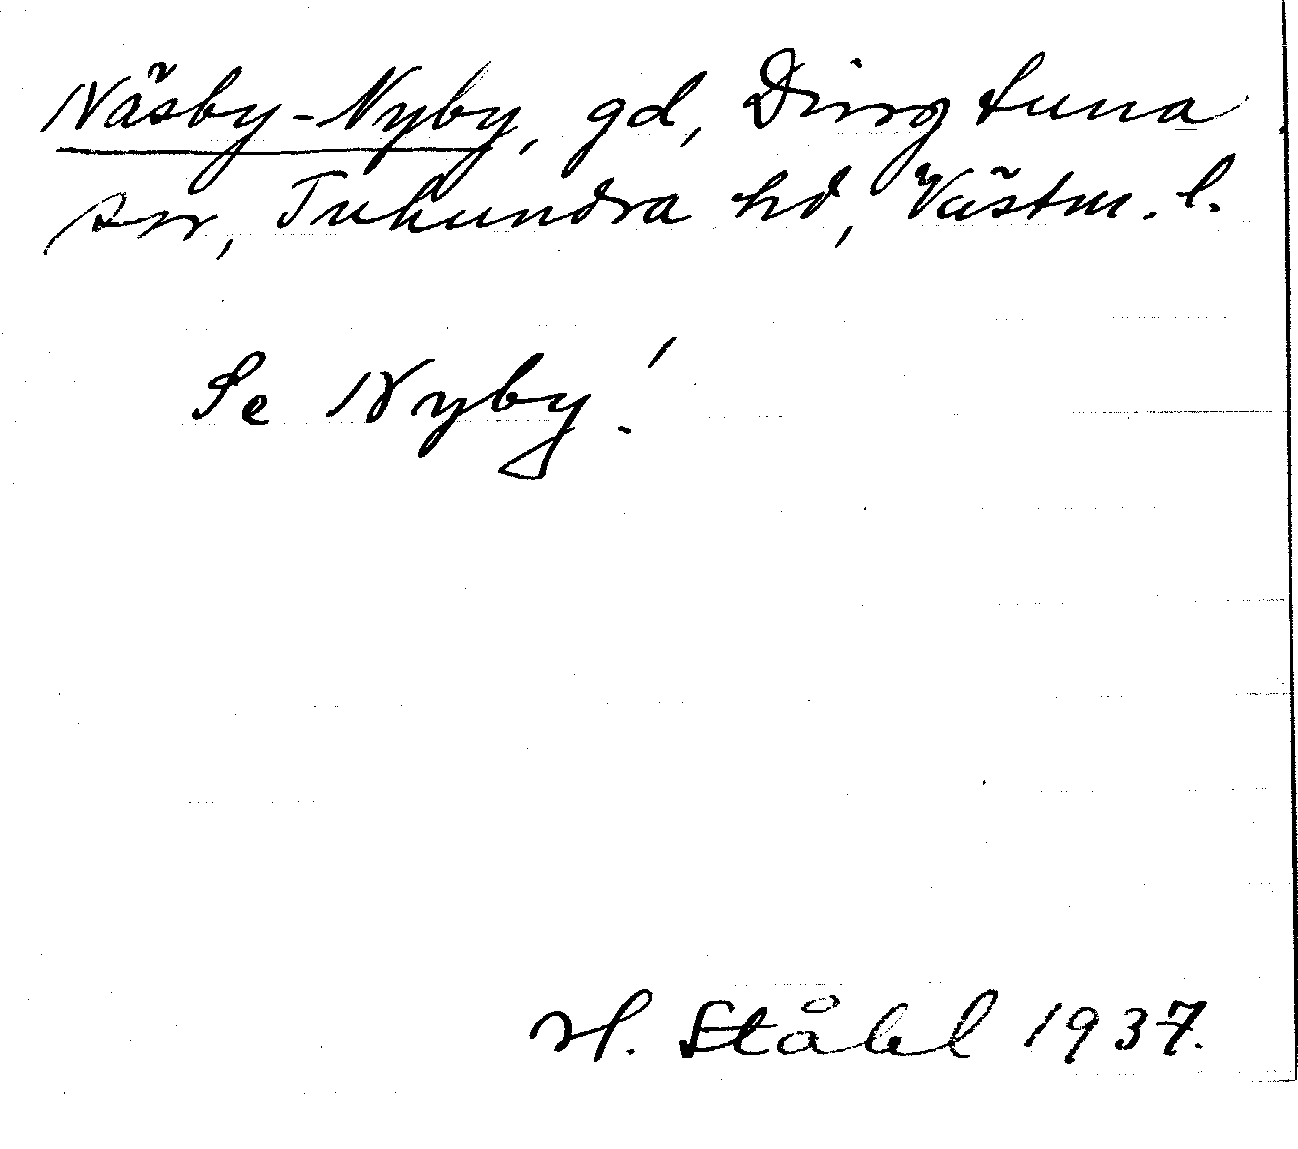 Näsby-Nyby, gd, Dingtuna
sn, Tuhundra hd, Västm. l.
Se Nyby!
H. Ståhl 1937.